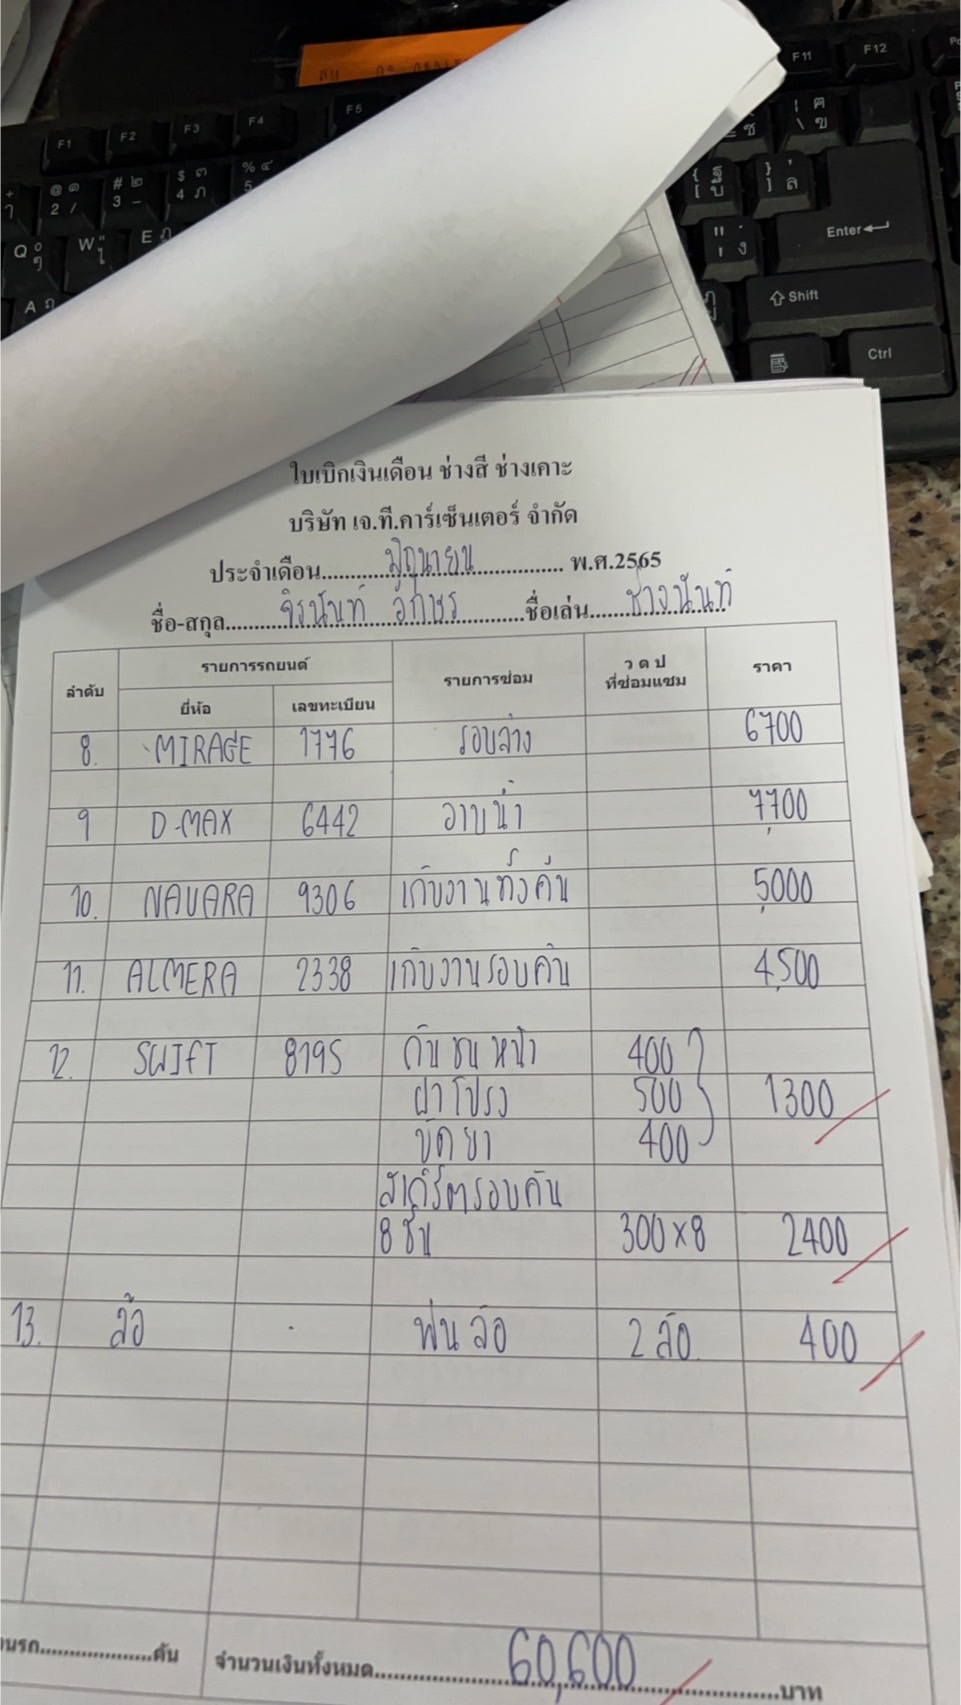 ใบเบิกเงินเดือน ช่างสี ช่างเคาะ
บริษัท เจ.ที.คาร์เซ็นเตอร์ จำกัด
ประจำเดือน มิถุนายน พ.ศ.2565
ชื่อ-สกุล จิรนันท์ อักษร ชื่อเล่น ช่างนันท์
ลำดับ รายการรถยนต์ รายการซ่อม ว ด ป ที่ซ่อมแซม ราคา
ยี่ห้อ เลขทะเบียน
8. MIRAGE 1776 รอบล่าง 6700
9 D-MAX 6442 อาบน้ำ 7,700
10. NAVARA 9306 เก็บงานทั้งคัน 5,000
11. ALMERA 2338 เก็บงานรอบคัน 4,500
12. SWIFT 8195 กันชนหน้า 400
ฝาโปรง 500 1300
ขัดยา 400
สเกิร์ตรอบคัน
8 ชิ้น 300x8 2400
13. ล้อ - พ่นล้อ 2 ล้อ 400
คัน จำนวนเงินทั้งหมด 60,600 บาท
F1 F2 F3 F4 F5 F11 F12
Q W E A
Enter
Shift
Ctrl